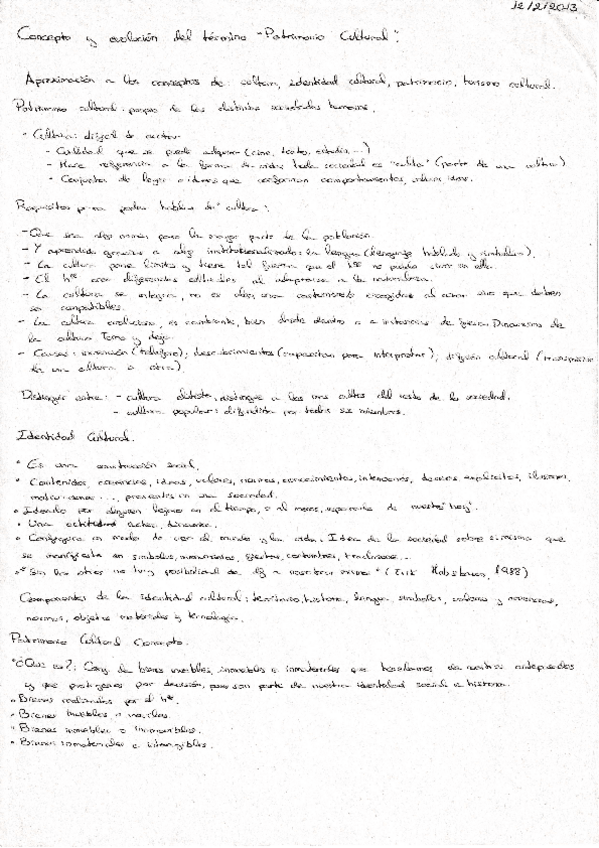 12/2/2013
Concepto y evolución del término "Patrimonio Cultural".
Aproximación a los conceptos de: cultura, identidad cultural, patrimonio, turismo cultural.
Patrimonio cultural: propio de las distintas sociedades humanas.
- Cultura: difícil de acotar
- Cualidad que se puede adquirir (cine, teatro, estudia...)
- Hace referencia a la forma de vida; toda sociedad es "culta" (parte de una cultura)
- Conjunto de leyes e ideas que conforman comportamientos,
Requisitos para poder hablar de "cultura":
- Que sea algo común para la mayor parte de la población.
- Y aprendida gracias a algo institucionalizado: la lengua (lenguaje hablado y simbólico).
- La cultura pone límites y tiene tal fuerza que el hº no puede vivir sin ella.
- El hº crea diferencias culturales al adaptarse a la naturaleza.
- La cultura se integra, no es algo, sino que deben
ser compatibles.
- La cultura evoluciona, es cambiante, bien desde dentro o a instancias de fuera. Dinamismo de
la cultura. Toma y deja.
- Causas: invención (indígena); descubrimientos; difusión cultural (
de una cultura a otra).
Distinguir entre: - cultura elitista, distingue a las más cultas del resto de la sociedad.
- cultura popular: difundida por todos sus miembros.
Identidad Cultural.
* Es una construcción social.
* Contenidos, creencias, ideas, valores, normas, conocimientos, intenciones, deseos, explícitos, ilusiones,
motivaciones..., presentes en una sociedad.
• Ideado por alguien lejano en el tiempo, o al menos, separado de nuestro "hoy".
• Una actitud activa, dinámica.
• Configura un modo de ver el mundo y la vida. Idea de la sociedad sobre sí misma que
se manifiesta en símbolos, monumentos, fiestas, costumbres, tradiciones...
• "Sin los otros no hay posibilidad de a nosotros mismos" (Erik Hobsbawn, 1988)
Componentes de la identidad cultural: territorio, historia, lengua, símbolos, valores y creencias,
normas, objetos materiales y tecnología.
Patrimonio Cultural. Concepto.
* ¿Qué es?: Conj. de bienes muebles, inmuebles e inmateriales que heredamos de nuestros antepasados
y que protegemos por decisión, pues son parte de nuestra identidad social e historia.
• Bienes realizados por el hº.
• Bienes muebles o móviles.
• Bienes inmuebles o inamovibles.
• Bienes inmateriales e intangibles.